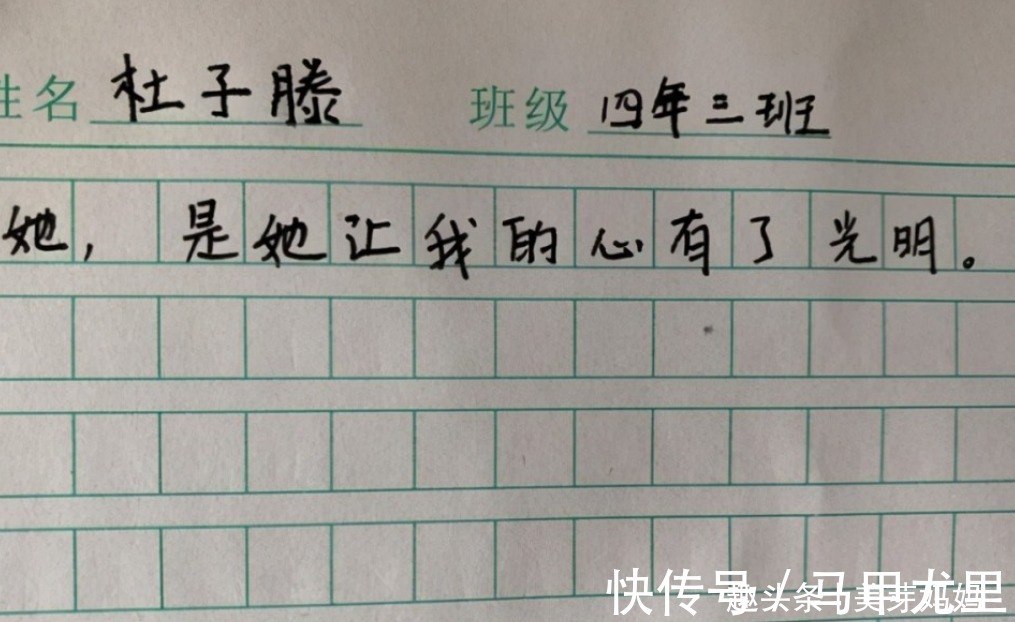 姓名 杜子滕 班级 四年三班
她，是她让我的心有了光明。
快传号／马甲尤里
趣头条